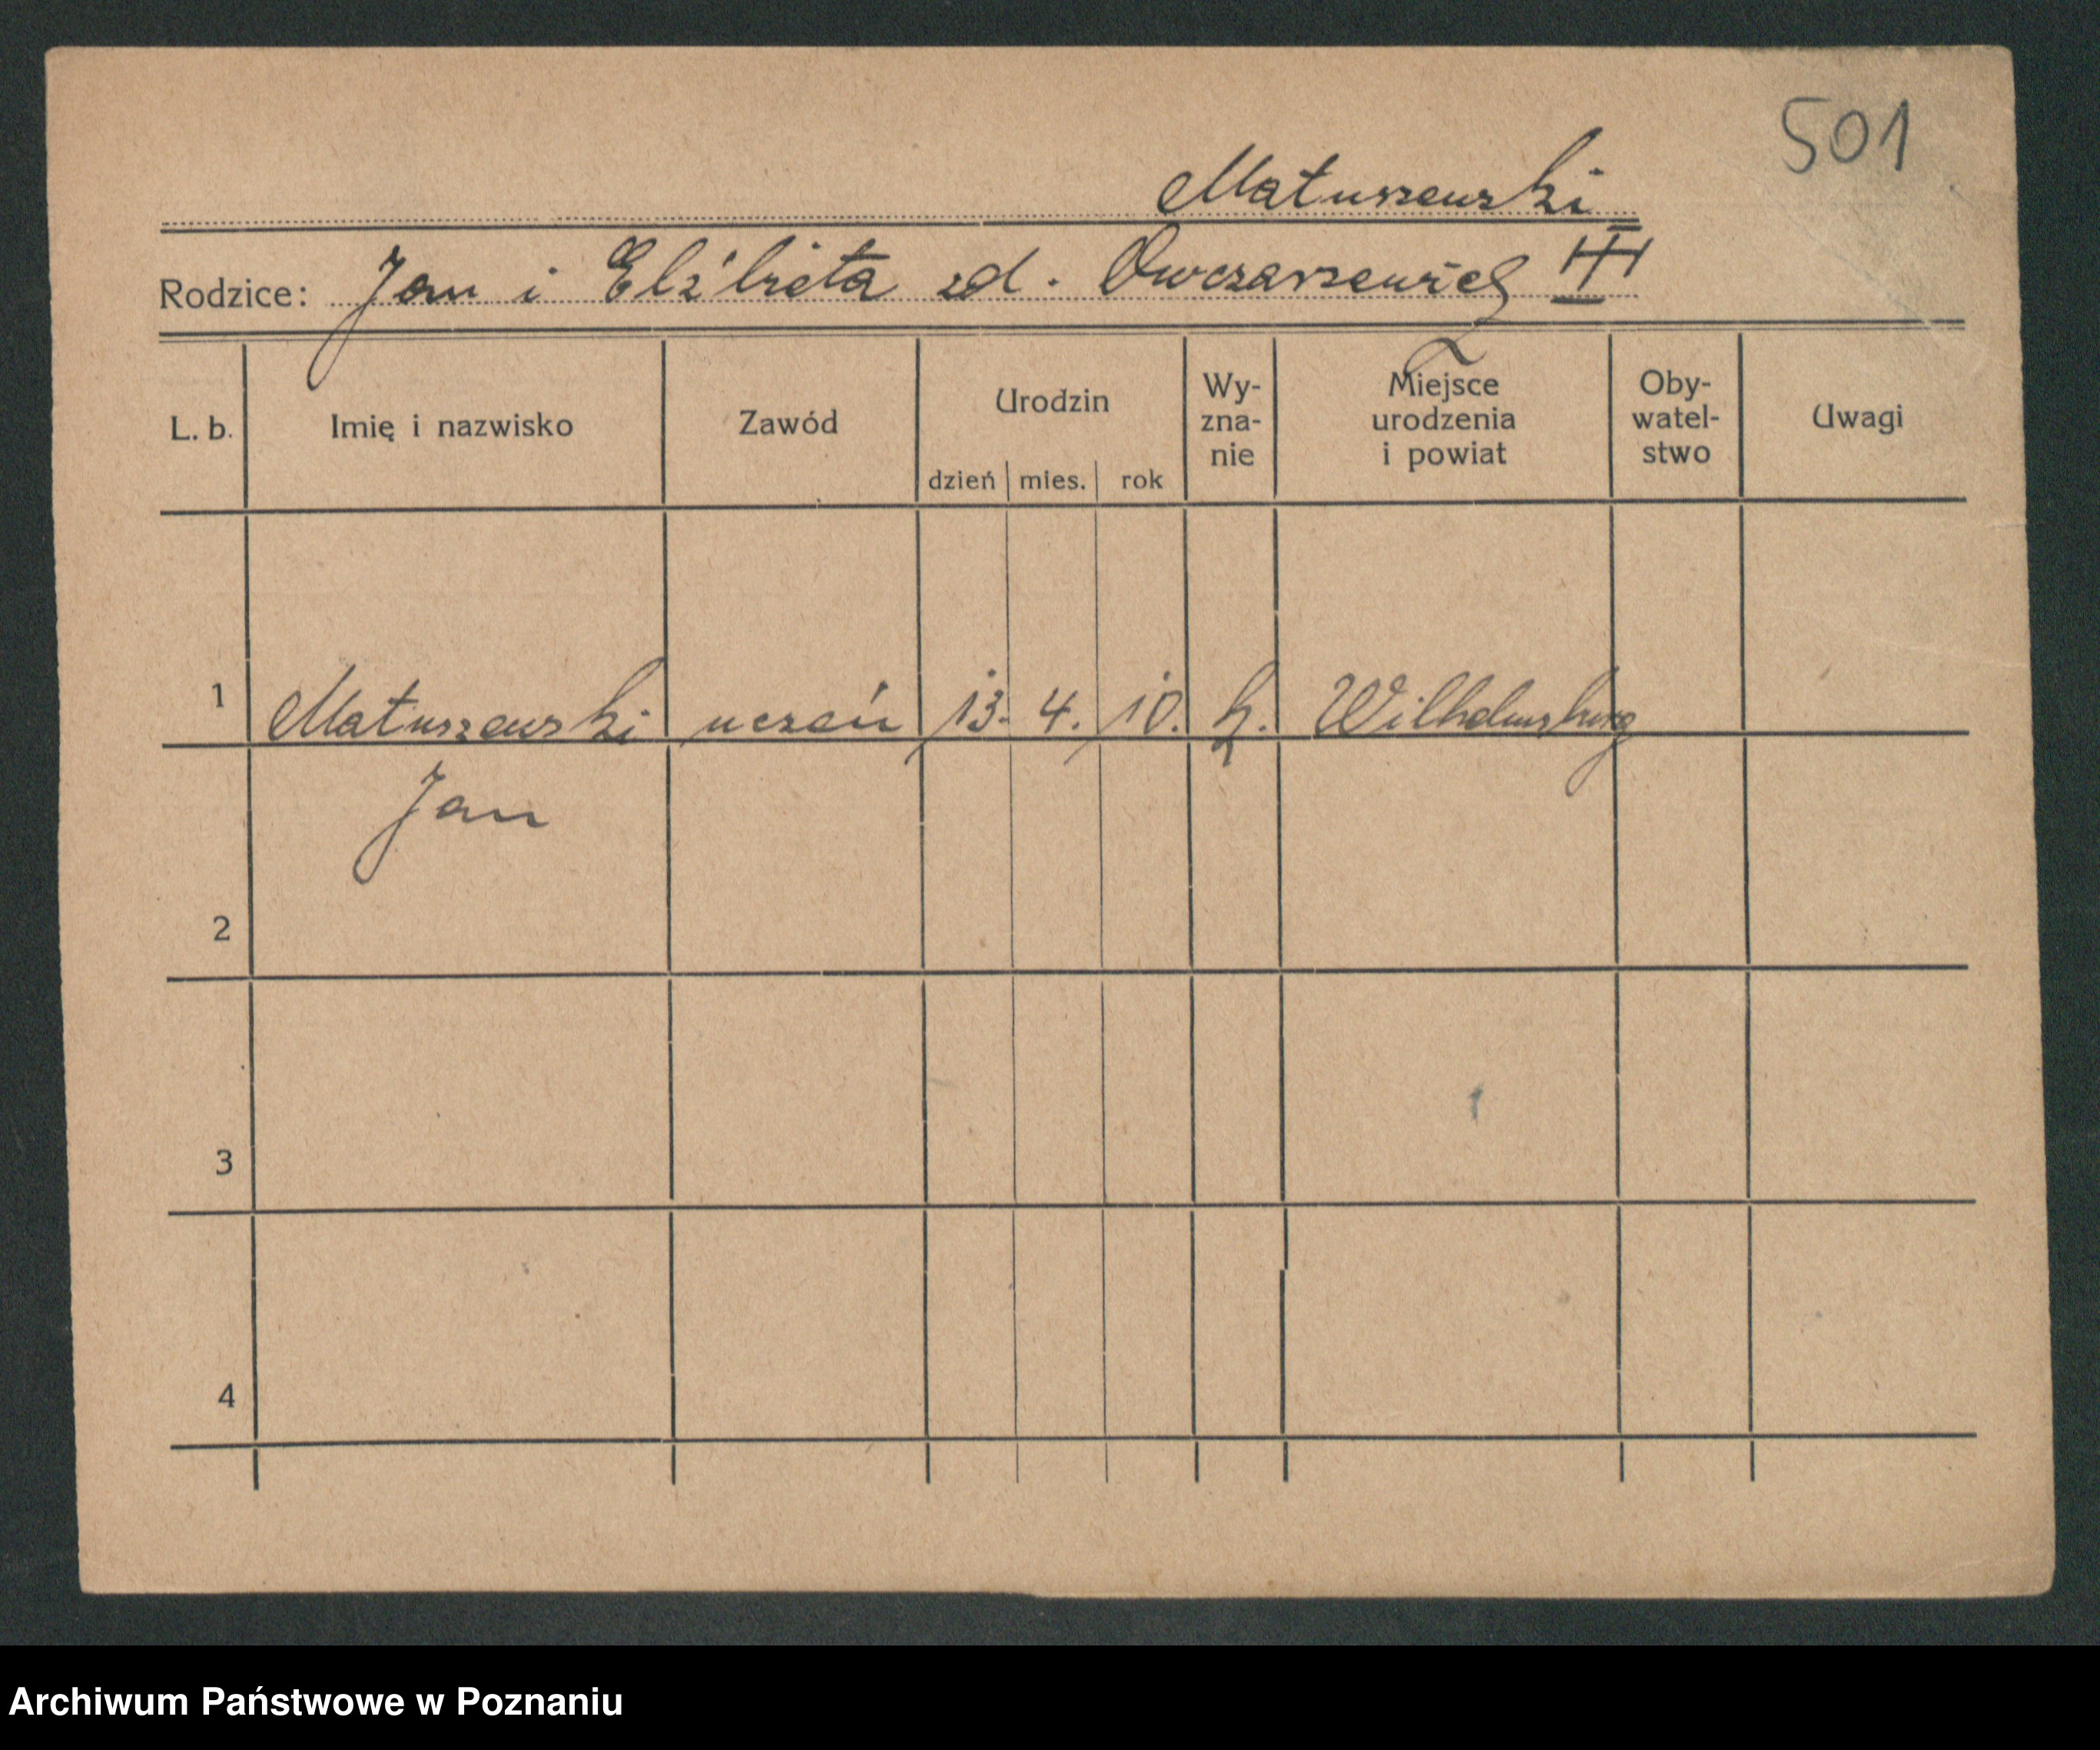 501
Matuszewski
Rodzice: Jan i Elżbieta zd. Owczarzewicz III
L. b. Imię i nazwisko Zawód Urodzin dzień mies. rok Wy-zna-nie Miejsce urodzenia i powiat Oby-watel-stwo Uwagi
1 Matuszewski uczeń 13. 4. 10. k. Wilhelmsburg
Jan
2
3
4
Archiwum Państwowe w Poznaniu